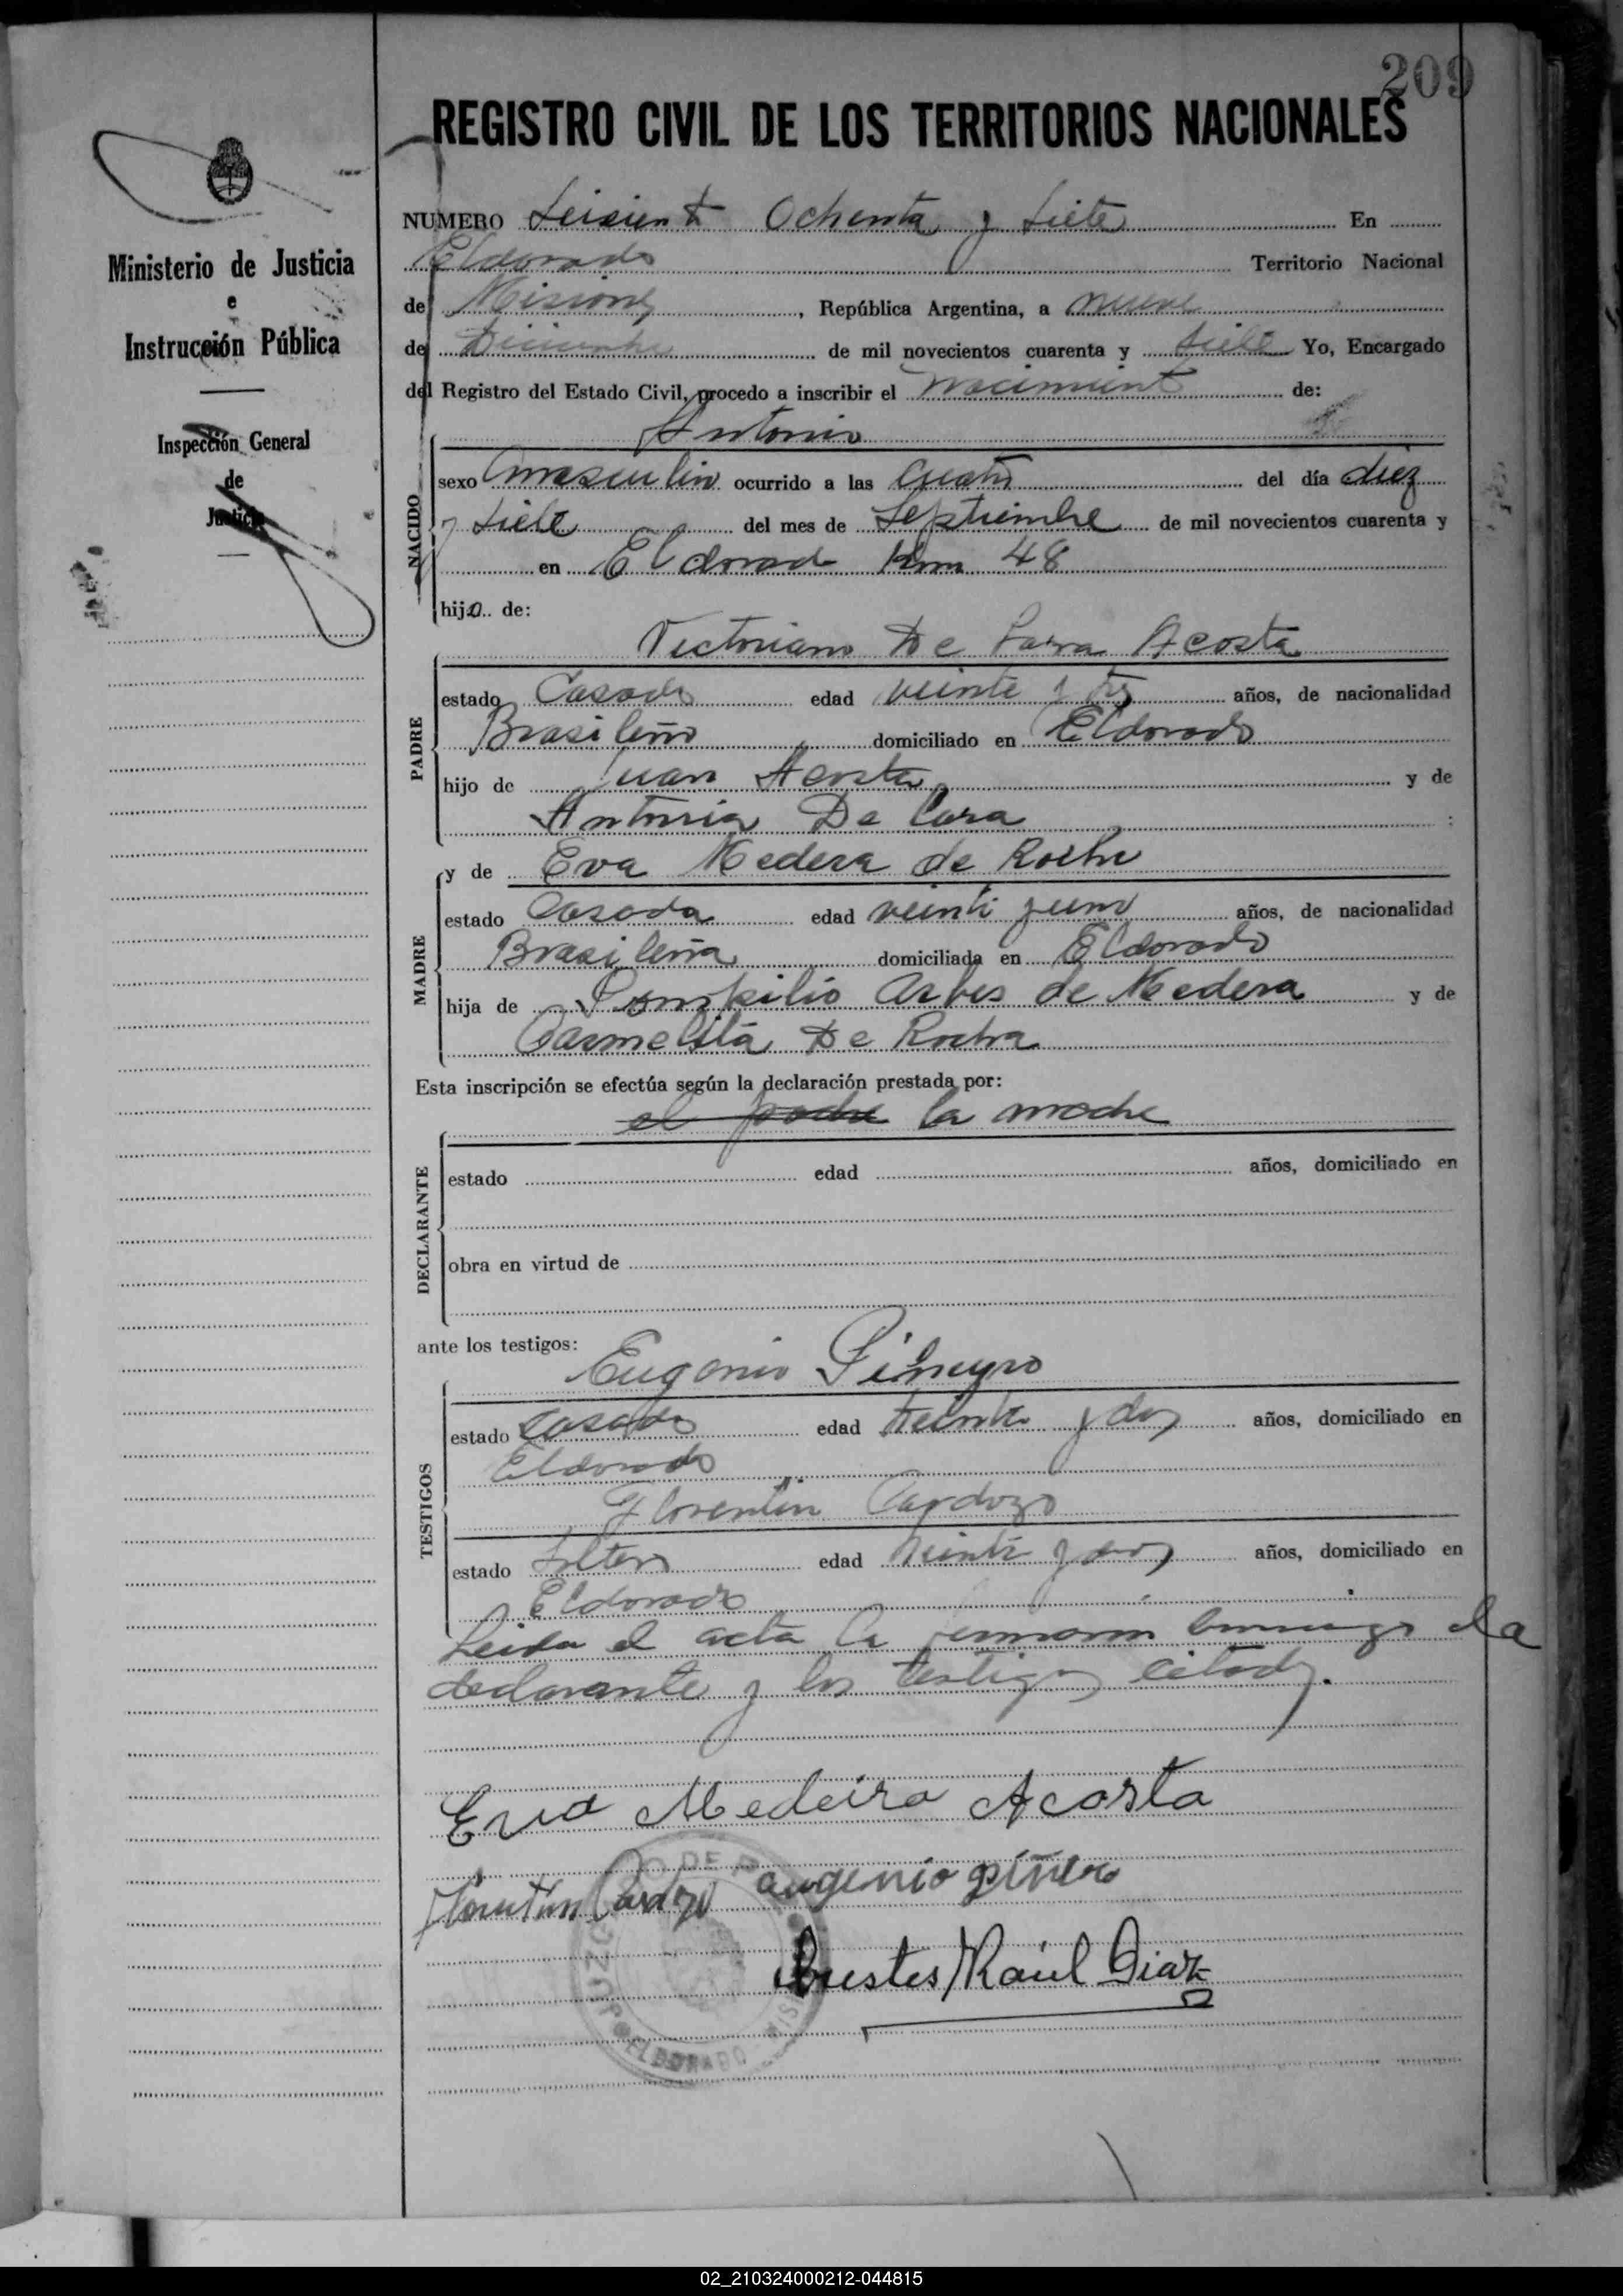 209
REGISTRO CIVIL DE LOS TERRITORIOS NACIONALES
Ministerio de Justicia
e
Instrucción Pública
Inspección General
de
Justicia
NUMERO Seisient Ochenta y Siete En
Eldorado Territorio Nacional
de Misiones, República Argentina, a nueve
de Diciembre de mil novecientos cuarenta y siete Yo, Encargado
del Registro del Estado Civil, procedo a inscribir el nacimiento de:
Antonio
NACIDO
sexo masculino ocurrido a las cuatro del día diez
y siete del mes de Septiembre de mil novecientos cuarenta y
en Eldorado Km 48
hijo de:
Victoriano De Acosta
PADRE
estado Casado edad veinte y tres años, de nacionalidad
Brasileño domiciliado en Eldorado
hijo de Juan Acosta y de
Antonia De Lara
MADRE
y de Eva Medera de
estado Casada edad veinti y uno años, de nacionalidad
Brasileña domiciliada en Eldorado
hija de Pompilio de Medera y de
Carmelita De Rocha
Esta inscripción se efectúa según la declaración prestada por:
el padre la madre
DECLARANTE
estado edad años, domiciliado en
obra en virtud de
ante los testigos:
Eugenio Piñeyro
TESTIGOS
estado casado edad treinta y dos años, domiciliado en
Eldorado
Florentin Cardozo
estado Soltero edad veinti y dos años, domiciliado en
Eldorado
Leida el acta la firmaron conmigo la
declarante y los testigos citados.
Eva Medeira Acosta
Florentin Cardozo eugenio piñero
Orestes Raúl Diaz
JUZGADO DE PAZ
ELDORADO MISIONES
02_210324000212-044815